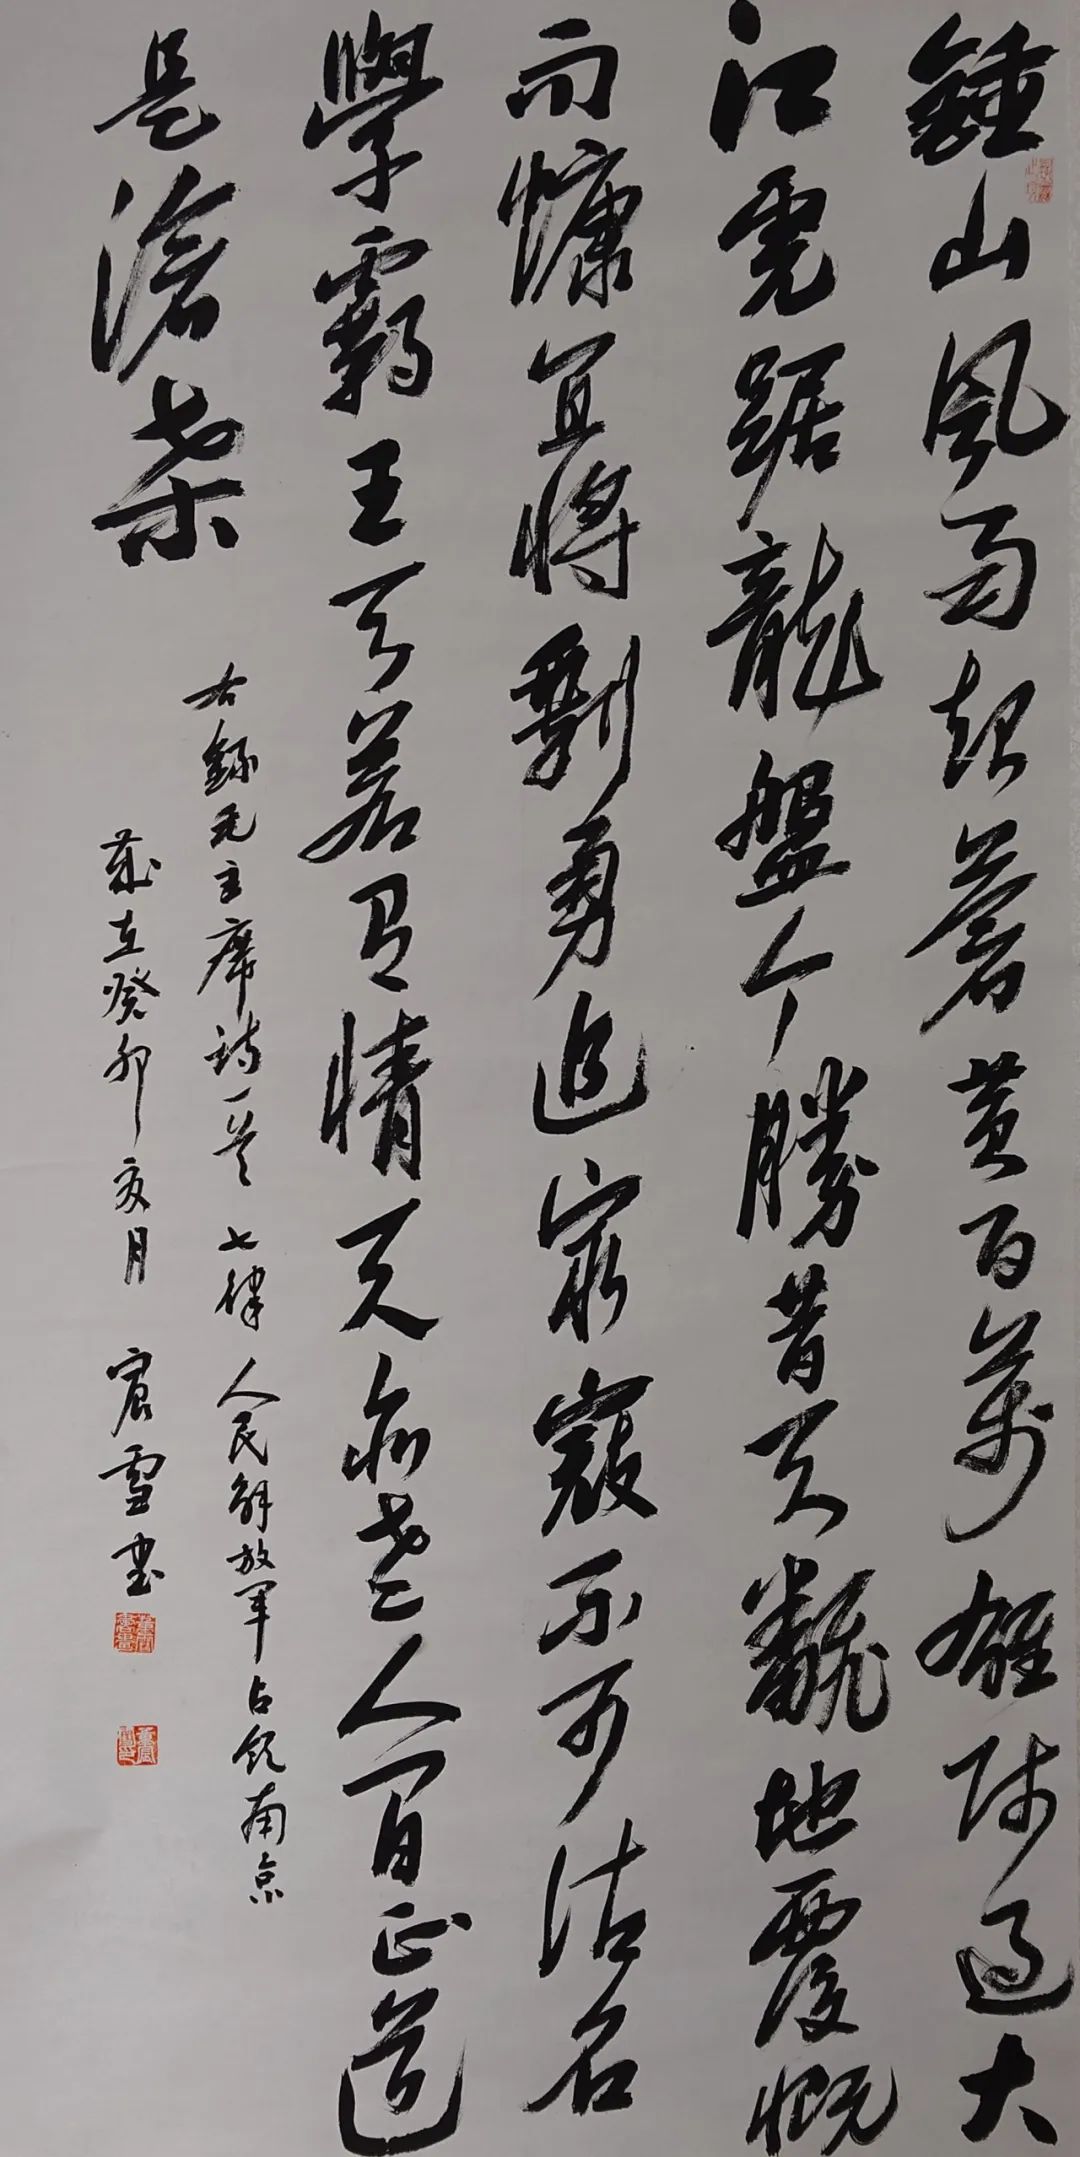 鍾山風雨起蒼黄百萬雄师過大
江虎踞龍盤今勝昔天翻地覆慨
而慷宜將剩勇追窮寇不可沽名
學霸王天若有情天亦老人間正道
是滄桑
右錄毛主席詩一首 七律 人民解放軍占領南京
歲在癸卯亥月 宸雪书